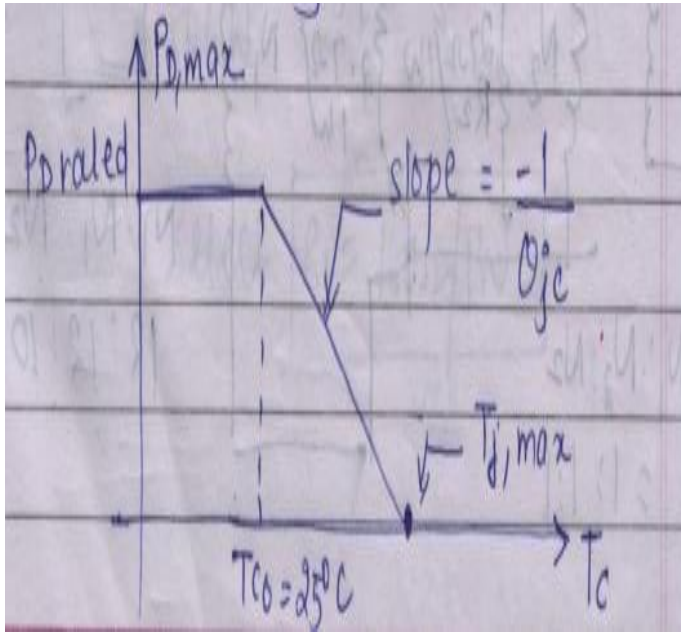 P_D,max
P_D rated
slope = -1/θ_jc
T_j, max
T_C0 = 25°C
T_C